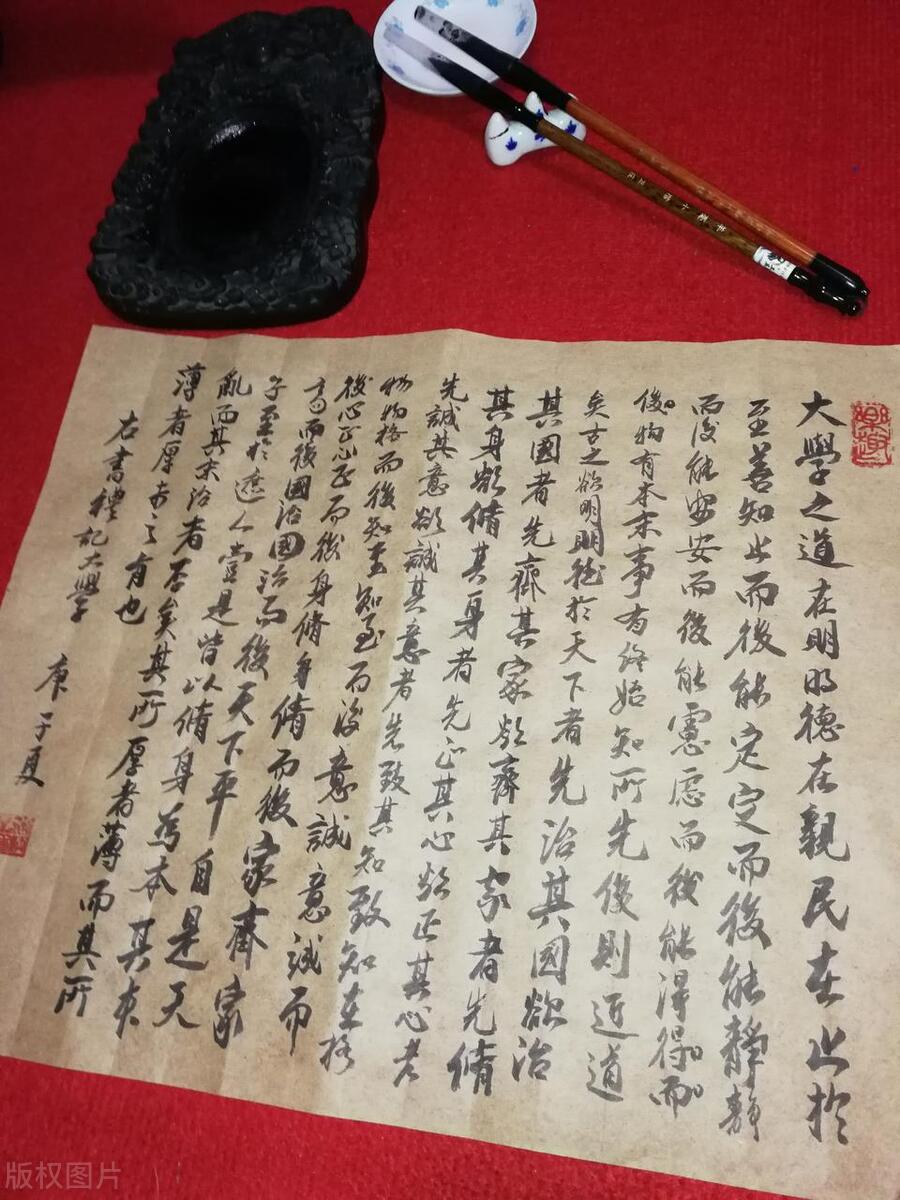 大學之道在明明德在親民在止於
至善知止而後能定定而後能靜靜
而後能安安而後能慮慮而後能得得而
後物有本末事有終始知所先後則近道
矣古之欲明明德於天下者先治其國欲治
其國者先齊其家欲齊其家者先脩
其身欲脩其身者先正其心欲正其心者
先誠其意欲誠其意者先致其知致知在格
物物格而後知至知至而後意誠意誠而
後心正心正而後身脩身脩而後家齊家
齊而後國治國治而後天下平自是天
子至於庶人壹是皆以脩身為本其本
亂而其末治者否矣其所厚者薄而其所
薄者厚未之有也
右書禮記大學 庚子夏
版权图片